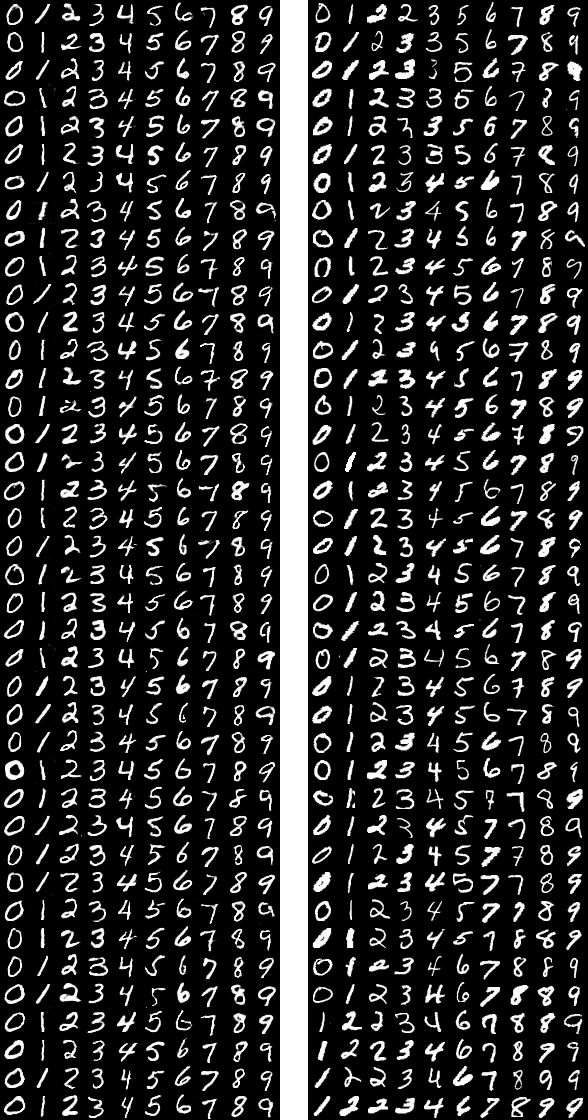 0 1 2 3 4 5 6 7 8 9
0 1 2 3 4 5 6 7 8 9
0 1 2 3 4 5 6 7 8 9
0 1 2 3 4 5 6 7 8 9
0 1 2 3 4 5 6 7 8 9
0 1 2 3 4 5 6 7 8 9
0 1 2 3 4 5 6 7 8 9
0 1 2 3 4 5 6 7 8 9
0 1 2 3 4 5 6 7 8 9
0 1 2 3 4 5 6 7 8 9
0 1 2 3 4 5 6 7 8 9
0 1 2 3 4 5 6 7 8 9
0 1 2 3 4 5 6 7 8 9
0 1 2 3 4 5 6 7 8 9
0 1 2 3 4 5 6 7 8 9
0 1 2 3 4 5 6 7 8 9
0 1 2 3 4 5 6 7 8 9
0 1 2 3 4 5 6 7 8 9
0 1 2 3 4 5 6 7 8 9
0 1 2 3 4 5 6 7 8 9
0 1 2 3 4 5 6 7 8 9
0 1 2 3 4 5 6 7 8 9
0 1 2 3 4 5 6 7 8 9
0 1 2 3 4 5 6 7 8 9
0 1 2 3 4 5 6 7 8 9
0 1 2 3 4 5 6 7 8 9
0 1 2 3 4 5 6 7 8 9
0 1 2 3 4 5 6 7 8 9
0 1 2 3 4 5 6 7 8 9
0 1 2 3 4 5 6 7 8 9
0 1 2 3 4 5 6 7 8 9
0 1 2 3 4 5 6 7 8 9
0 1 2 3 4 5 6 7 8 9
0 1 2 3 4 5 6 7 8 9
0 1 2 3 4 5 6 7 8 9
0 1 2 3 4 5 6 7 8 9
0 1 2 3 4 5 6 7 8 9
0 1 2 3 4 5 6 7 8 9
0 1 2 3 4 5 6 7 8 9
0 1 2 3 4 5 6 7 8 9
0 1 2 2 3 5 6 7 8 9
0 1 2 3 3 5 6 7 8 9
0 1 2 3 3 5 6 7 8 9
0 1 2 3 3 5 6 7 8 9
0 1 2 3 3 5 6 7 8 9
0 1 2 3 3 5 6 7 8 9
0 1 2 3 4 5 6 7 8 9
0 1 2 3 4 5 6 7 8 9
0 1 2 3 4 5 6 7 8 9
0 1 2 3 4 5 6 7 8 9
0 1 2 3 4 5 6 7 8 9
0 1 2 3 4 5 6 7 8 9
0 1 2 3 4 5 6 7 8 9
0 1 2 3 4 5 6 7 8 9
0 1 2 3 4 5 6 7 8 9
0 1 2 3 4 5 6 7 8 9
0 1 2 3 4 5 6 7 8 9
0 1 2 3 4 5 6 7 8 9
0 1 2 3 4 5 6 7 8 9
0 1 2 3 4 5 6 7 8 9
0 1 2 3 4 5 6 7 8 9
0 1 2 3 4 5 6 7 8 9
0 1 2 3 4 5 6 7 8 9
0 1 2 3 4 5 6 7 8 9
0 1 2 3 4 5 6 7 8 9
0 1 2 3 4 5 6 7 8 9
0 1 2 3 4 5 6 7 8 9
0 1 2 3 4 5 6 7 8 9
0 1 2 3 4 5 7 7 8 9
0 1 2 3 4 5 7 7 8 9
0 1 2 3 4 5 7 7 8 9
0 1 2 3 4 5 7 7 8 9
0 1 2 3 4 5 7 7 8 9
0 1 2 3 4 5 7 8 8 9
0 1 2 3 4 6 7 8 8 9
0 1 2 3 4 6 7 8 8 9
1 2 2 3 4 6 7 8 8 9
1 2 2 3 4 6 7 8 9 9
1 2 2 3 4 6 7 8 9 9
1 2 2 3 4 6 7 8 9